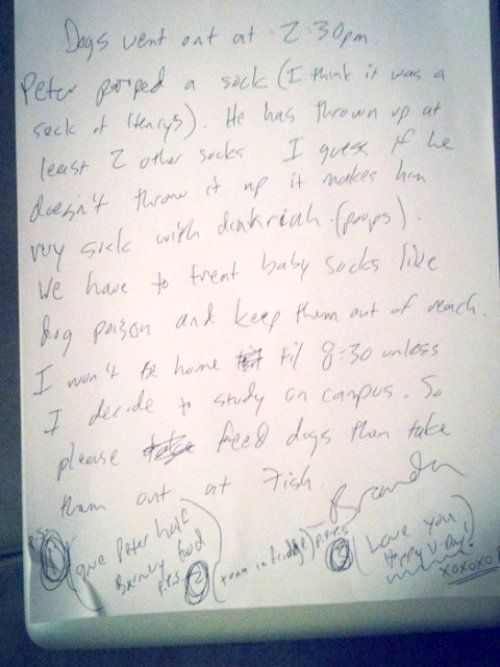 Dogs went out at 2:30pm.
Peter pooped a sock (I think it was a
sock of Henry's). He has thrown up at
least 2 other socks I guess if he
doesn't throw it up it makes him
very sick with (poops).
We have to treat baby socks like
dog poison and keep them out of reach.
I won't be home til 8:30 unless
I decide to study on campus. So
please feed dogs then take
them out at 7ish.
Brandon
P.S. 1 (give Peter half
Barnury food
P.P.S. 2 (tuna in fridge)
P.P.P.S 3 (Love you
Happy V-Day!
xoxoxo